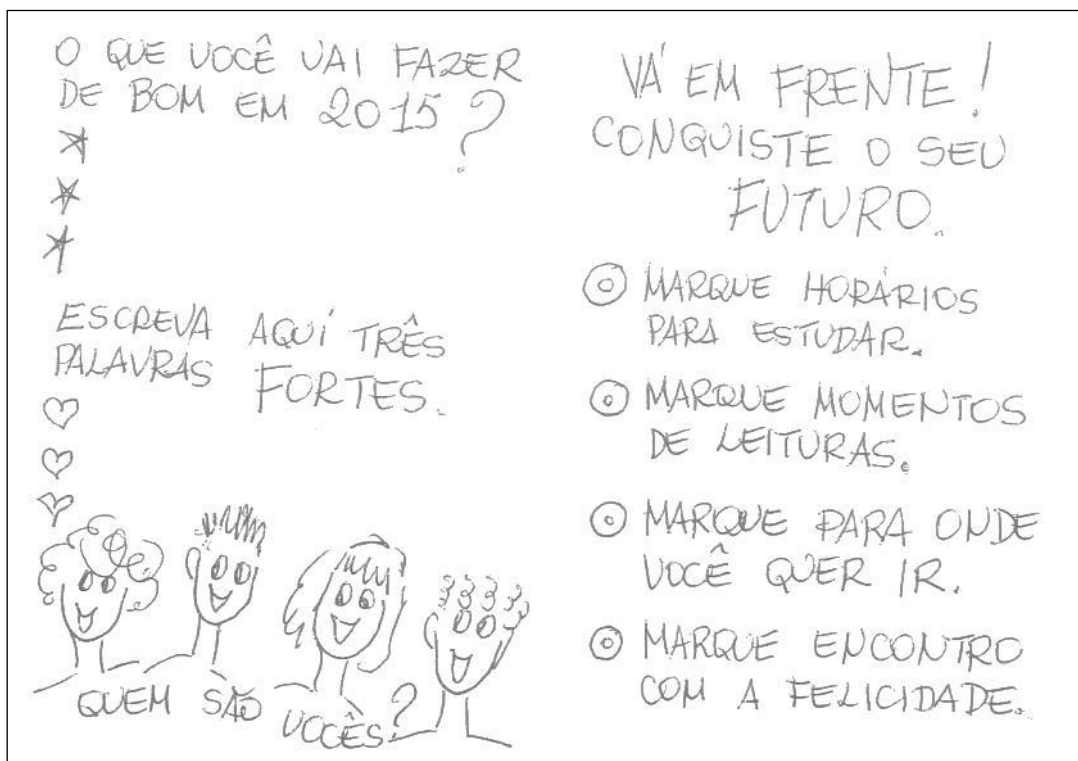 O QUE VOCÊ VAI FAZER
DE BOM EM 2015?
ESCREVA AQUI TRÊS
PALAVRAS FORTES.
QUEM SÃO VOCÊS?
VÁ EM FRENTE!
CONQUISTE O SEU
FUTURO.
MARQUE HORÁRIOS
PARA ESTUDAR.
MARQUE MOMENTOS
DE LEITURAS.
MARQUE PARA ONDE
VOCÊ QUER IR.
MARQUE ENCONTRO
COM A FELICIDADE.